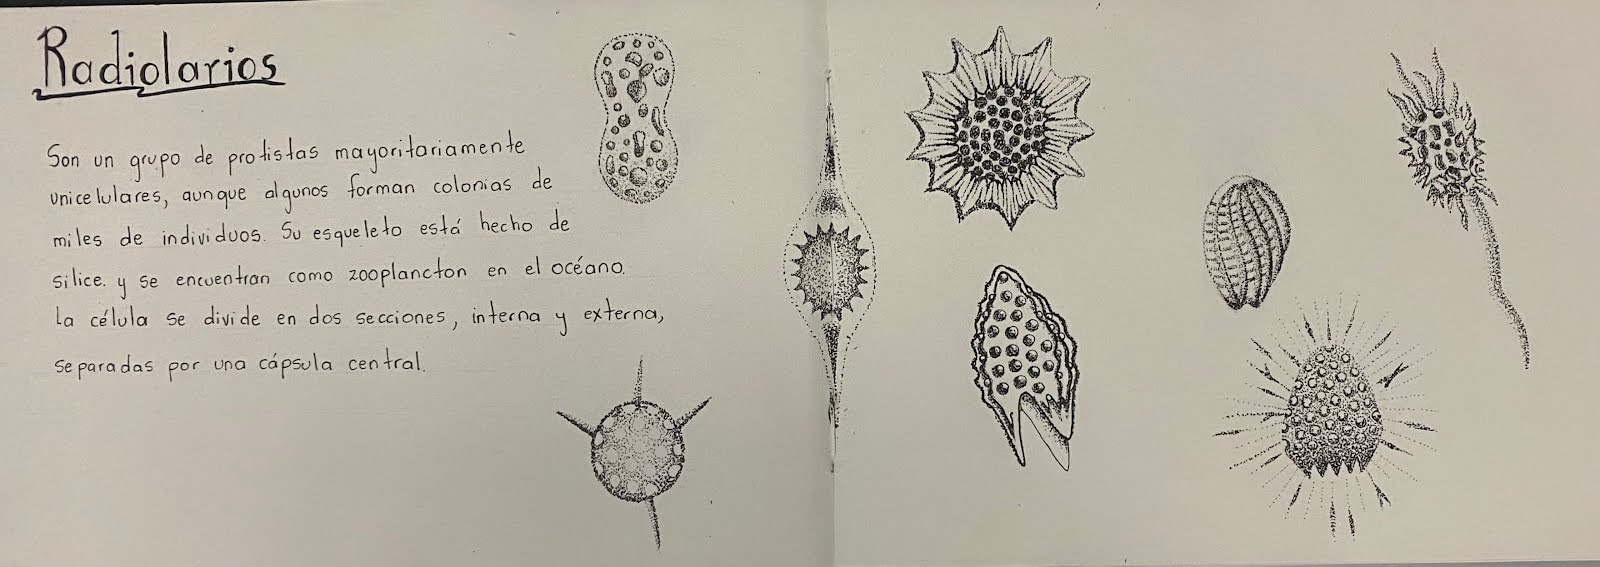 Radiolarios
Son un grupo de protistas mayoritariamente
unicelulares, aunque algunos forman colonias de
miles de individuos. Su esqueleto está hecho de
sílice. y se encuentran como zooplancton en el océano.
La célula se divide en dos secciones, interna y externa,
separadas por una cápsula central.